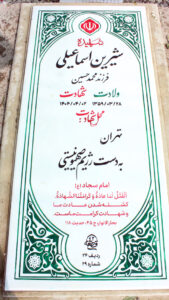 شهیده
شیرین اسماعیلی
فرزند محمدحسین
ولادت شهادت
۱۳۵۹/۰۳/۲۸ ۱۴۰۴/۰۴/۰۲
محل شهادت:
تهران
به دست رژیم صهیونیستی
امام سجاد(ع):
اَلْقَتْلُ لَنا عادَةٌ وَ كَرامَتُنَا الشَّهادَةُ
کشته شدن عادت ما
و شهادت کرامت ماست.
بحارالانوار، ج ۴۵، حدیث ۱۱۸
ردیف ۲۴
شماره ۲۹